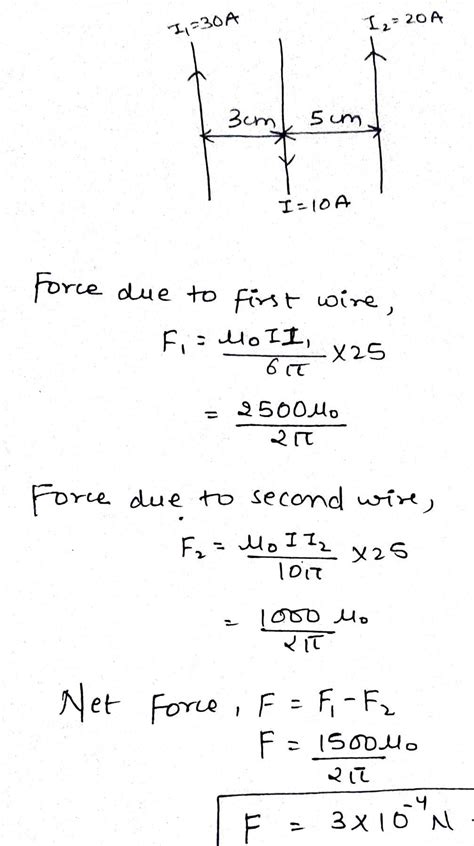 I₁=30A I₂=20A
3cm 5cm
I=10A
Force due to first wire,
F₁ = μ₀II₁/6π ×25
= 2500μ₀/2π
Force due to second wire,
F₂ = μ₀II₂/10π ×25
= 1000 μ₀/2π
Net Force, F = F₁-F₂
F = 1500μ₀/2π
F = 3×10⁻⁴N